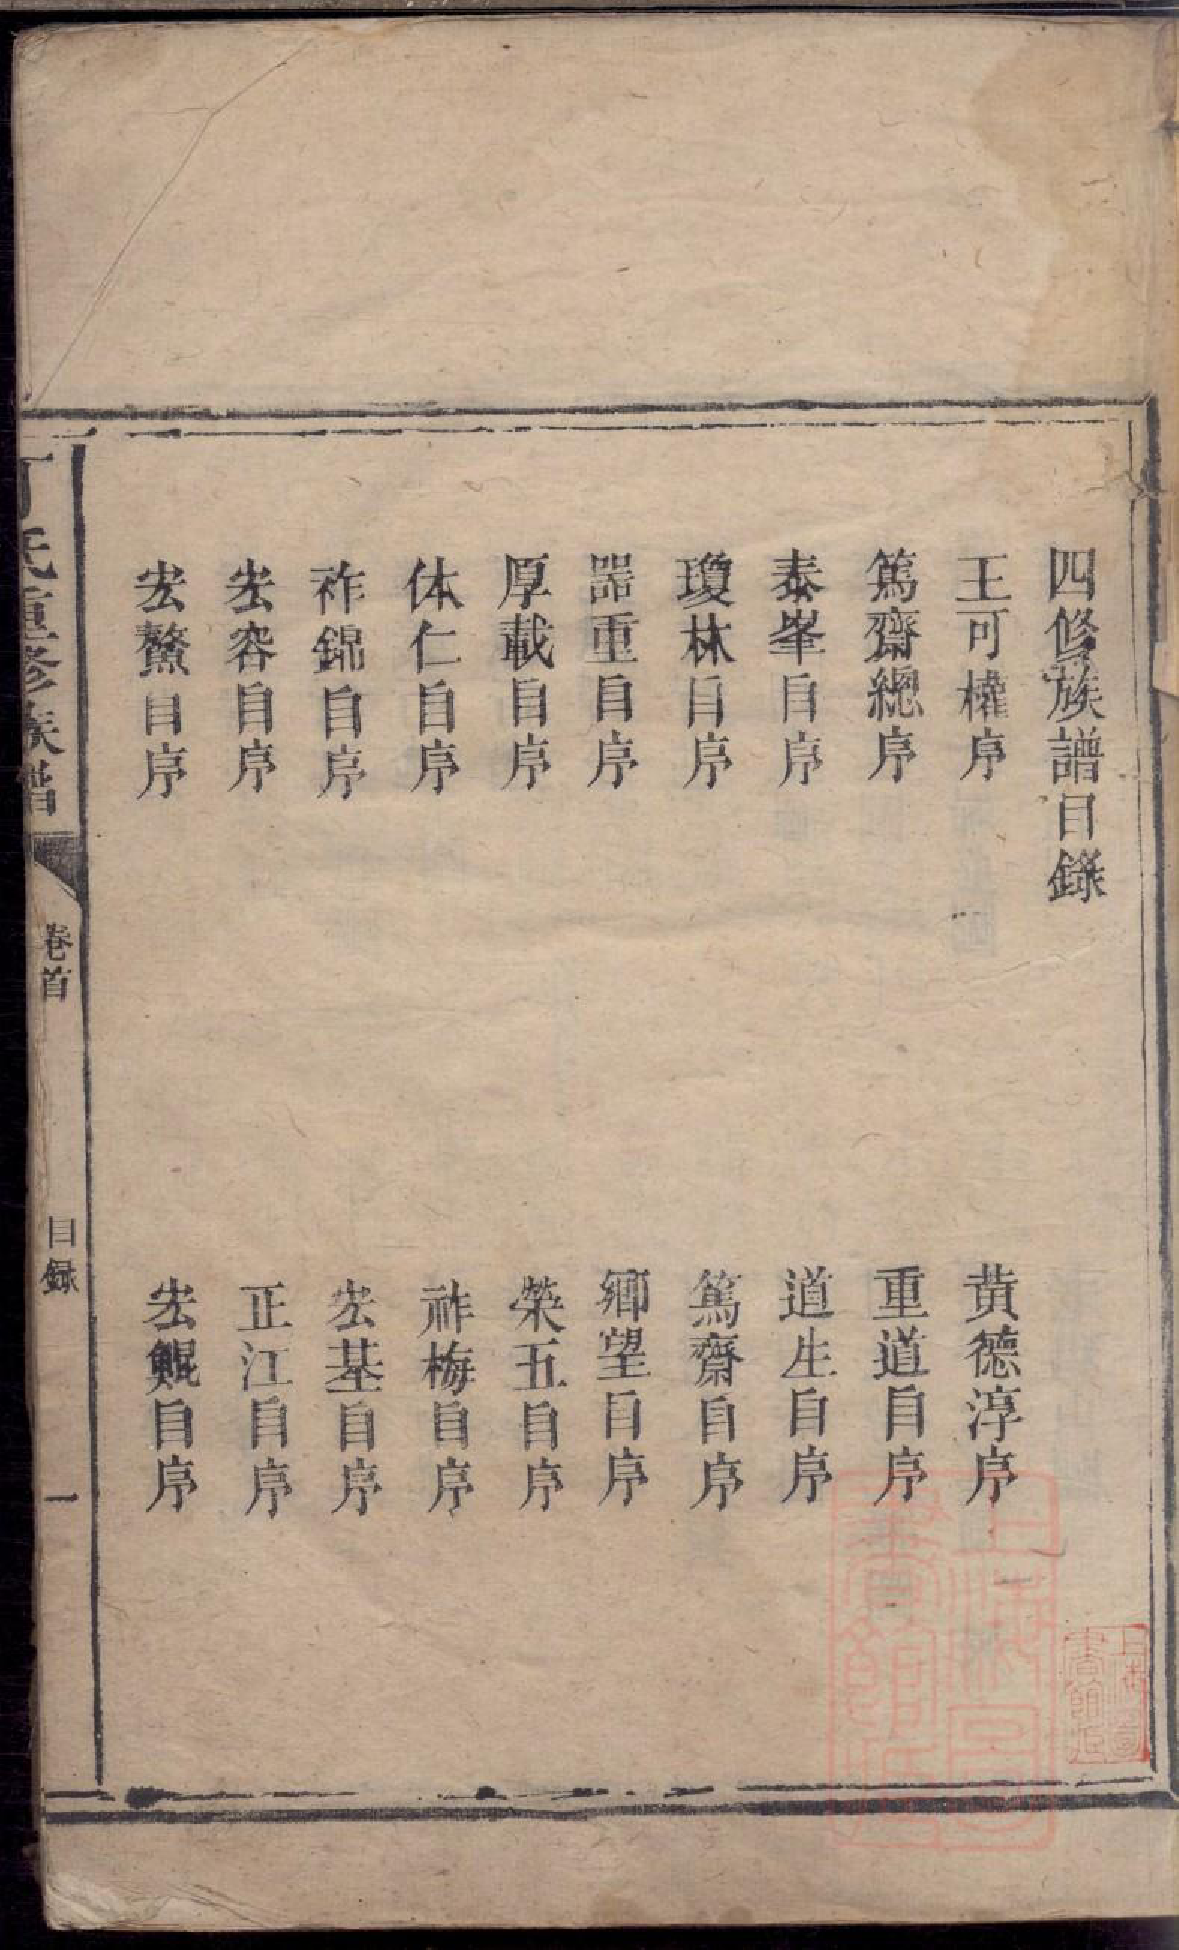 四修族譜目錄
王可權序
黃德淳序
篤齋總序
重道自序
泰峯自序
道生自序
瓊林自序
篤齋自序
器重自序
鄉望自序
厚載自序
榮五自序
体仁自序
祚梅自序
祚錦自序
宏基自序
宏容自序
正江自序
宏鰲自序
宏鯤自序
丁氏重修族譜
卷首
目録
一
上海圖書館藏